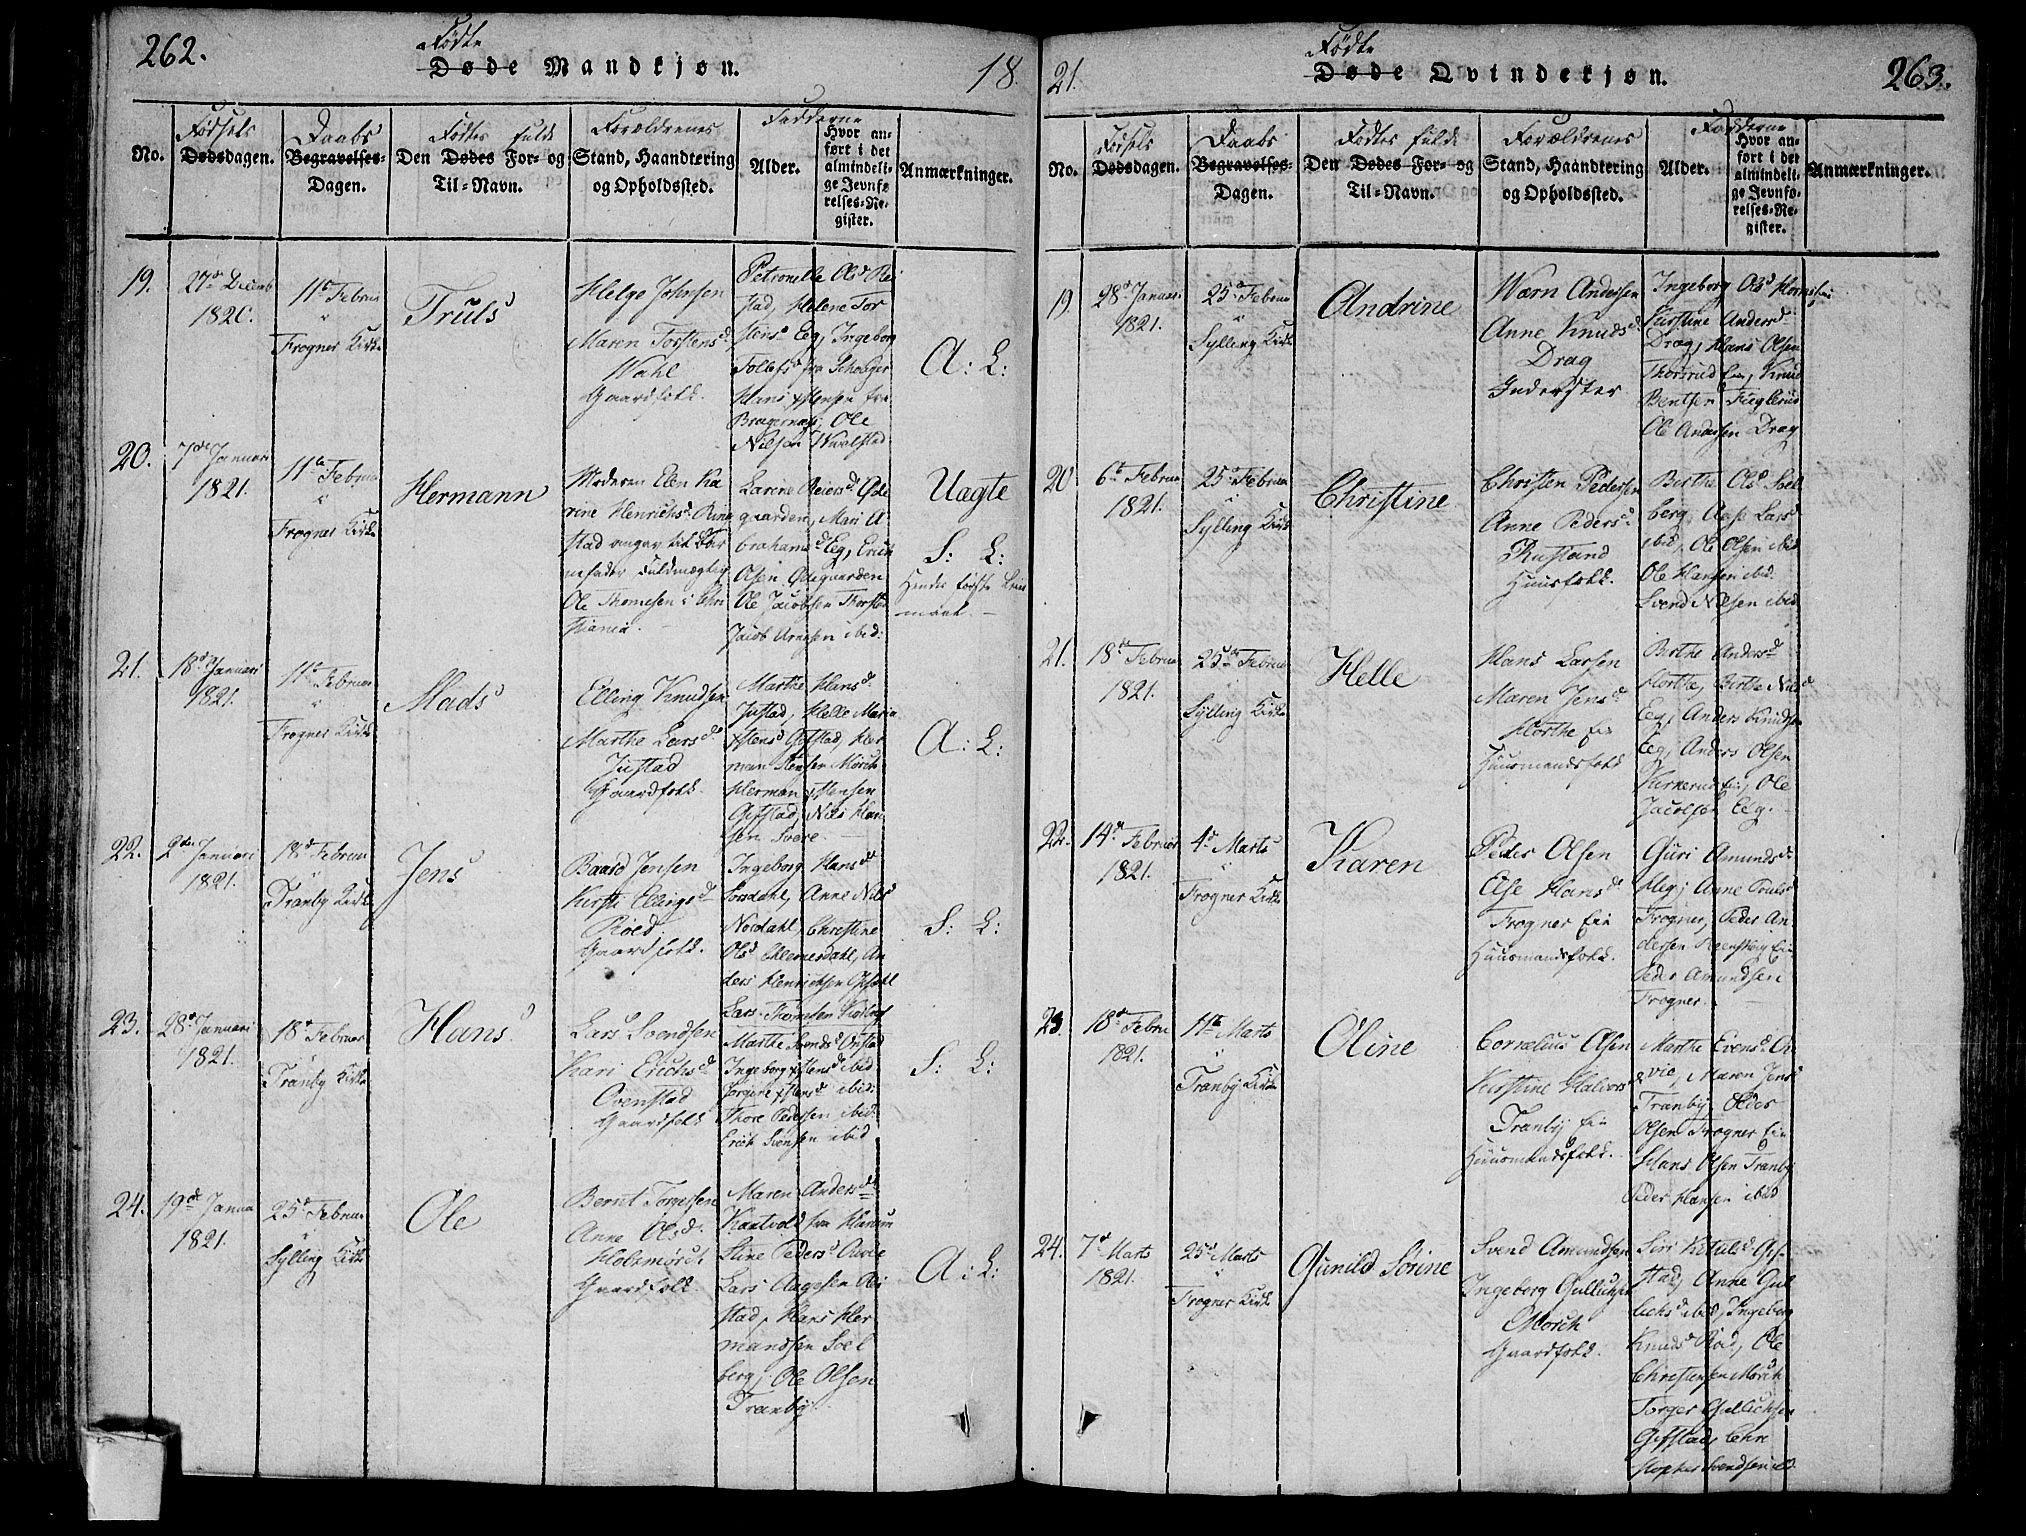 262.
Fødte
Døde Mandkjøn.
18
No.
Fødsels
Dødsdagen.
Daabs
Begravelses-
Dagen.
Fødtes fulde
Den Dødes For- og
Til-Navn.
Forældrenes
Stand, Haandtering
og Opholdssted.
Fadderne
Alder.
Hvor an-
ført i det
almindeli-
ge Jevnfø-
relses-Re-
gister.
Anmærkninger.
19.
27de Decemb
1820.
11te Februar
Frogner Kirke
Truls
Helge Johnsen
Maren Torstensd
Wahl
Gaardfolk.
Petronelle Olsd
stad, Helene Tor
stensd Eeg, Ingeborg
Hans Jensen fra
Bragernæs, Ole
Nilsen
A: L:
20.
7de Januari
1821.
11te Februar
Frogner Kirke
Hermann
Moderen Elen Ka
rine Henrichsd
stad angav til Bar
nefader Fuldmægtig
Ole Thomesen i Chri
stiania.
Larine Reiersd Øde
gaarden, Mari A-
brahamsd Eeg, Erich
Olsen Ødegaarden
Ole Jacobsen
Jacob Arnesen ibid:
Uægte
S: L:
Hendes første Leier
maal.
21.
18de Januari
1821.
11te Februar
Frogner Kirke
Mads
Elling Knudsen
Marthe Larsd
Justad
Gaardfolk.
Marthe Hansd
Justad, Helle Maria
Jensd Gifstad, Her
man Jensen Mørch
Herman Jensen
Gifstad, Nils Han
sen
A: L:
22.
2den Januari
1821.
18de Februar
Tranby Kirke
Jens
Baard Jensen
Kirsti Ellingsd
Røed
Gaardfolk.
Ingeborg Hansd
Anne Nilsd
Nordahl, Christine
Olsd
ders Henrichsen
Lars Thomesen
S: L:
23.
28de Januari
1821.
18de Februar
Tranby Kirke
Hans
Lars Svendsen
Kari Erichsd
Ovenstad
Gaardfolk
Marthe
Ingeborg Jensd ibid
Jørgine Jensd ibid:
Thore Pedersen ibid:
Erich Svensen ibid
S: L:
24.
19de Janua
1821.
25de Februar
Sylling Kirke
Ole
Bernt Torgersen
Anne Olsd.
Gaardfolk
Maren Andersd
fra Harum
Stine Pedersd
Lars Aagesen
stad, Hans Her
mandsen Soel
berg, Ole Olsen
Tranby
A: L:
21.
Fødte
Døde Qvindekjøn.
263.
No.
Fødsels
Dødsdagen.
Daabs
Begravelses-
Dagen.
Fødtes fulde
Den Dødes For- og
Til-Navn.
Forældrenes
Stand, Haandtering
og Opholdssted.
Fadderne
Alder.
Hvor an-
ført i det
almindeli-
ge Jevnfø-
relses-Re-
gister.
Anmærkninger.
19
28de Januari
1821.
25de Februar
Sylling Kirke
Andrine
Wærn Andersen
Anne Knudsd
Drag
Inderster
Ingeborg Olsd
Kirstine Andersd
Drag, Hans Olsen
Thorsrud Eie, Knud
Bentsen Fuglerud
Ole Andersen Drag
20
6te Februar
1821.
25de Februar
Sylling Kirke
Christine
Christen Pedersen
Anne Pedersd
Rustand
Huusfolk.
Berthe Olsd Soel
berg, Aase Larsd
ibid, Ole Olsen ibid
Ole Hansen ibid.
Svend Nilsen ibid
21.
18de Februar
1821.
25de Februar
Sylling Kirke
Helle
Hans Larsen
Maren Jensd
Horthe Eie
Huusmandsfolk
Berthe Andersd
Horthe, Berthe Nilsd
Eeg, Anders Knudsen
Eeg, Anders Olsen
Ole
Jacobsen Eeg.
22.
14de Februar
1821.
4de Marts
Frogner Kirke
Karen
Peder Olsen
Else Hansd
Frogner Eie
Huusmandsfolk.
Guri Amundsd
Heg, Anne Poulsd
Frogner, Peder An
dersen
Peder Amundsen
Frogner.
23.
18de Febru
1821.
11te Marts
Tranby Kirke
Oline
Cornelius Olsen
Kirstine Halvorsd
Tranby Eie
Huusmandsfolk.
Marthe Evensd
Maren Jensd
Tranby,
Olsen Frogner Eie
Hans Olsen Tranby
Peder Hansen ibid
24.
7de Marts
1821.
25de Marts
Frogner Kirke
Gunild Sørine
Svend Amundsen
Ingeborg Gullichsd
Mørch
Gaardfolk.
Siri Ketulsd Gif-
stad, Anne Gul
lichsd ibid, Ingeborg
Knudsd Røed, Ole
Christensen Mørch
Torger Gullichsen
Gifstad, Chri
stopher Svendsen ibid